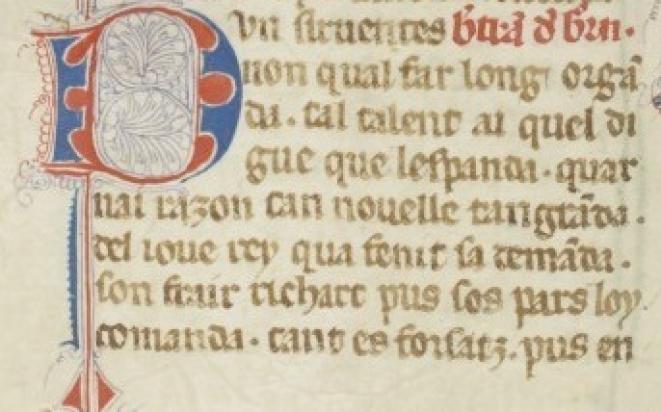 D Vn siruentes b̓trã d̓ brn.
non qual far long orgã
da. tal talent ai quel di
gue que lespanda. quar
nai razon tan nouelle tan grãda.
del ioue rey qua fenit sa demãda.
son frair richart pus sos pars loy
comanda. tant es forsatz. pus en